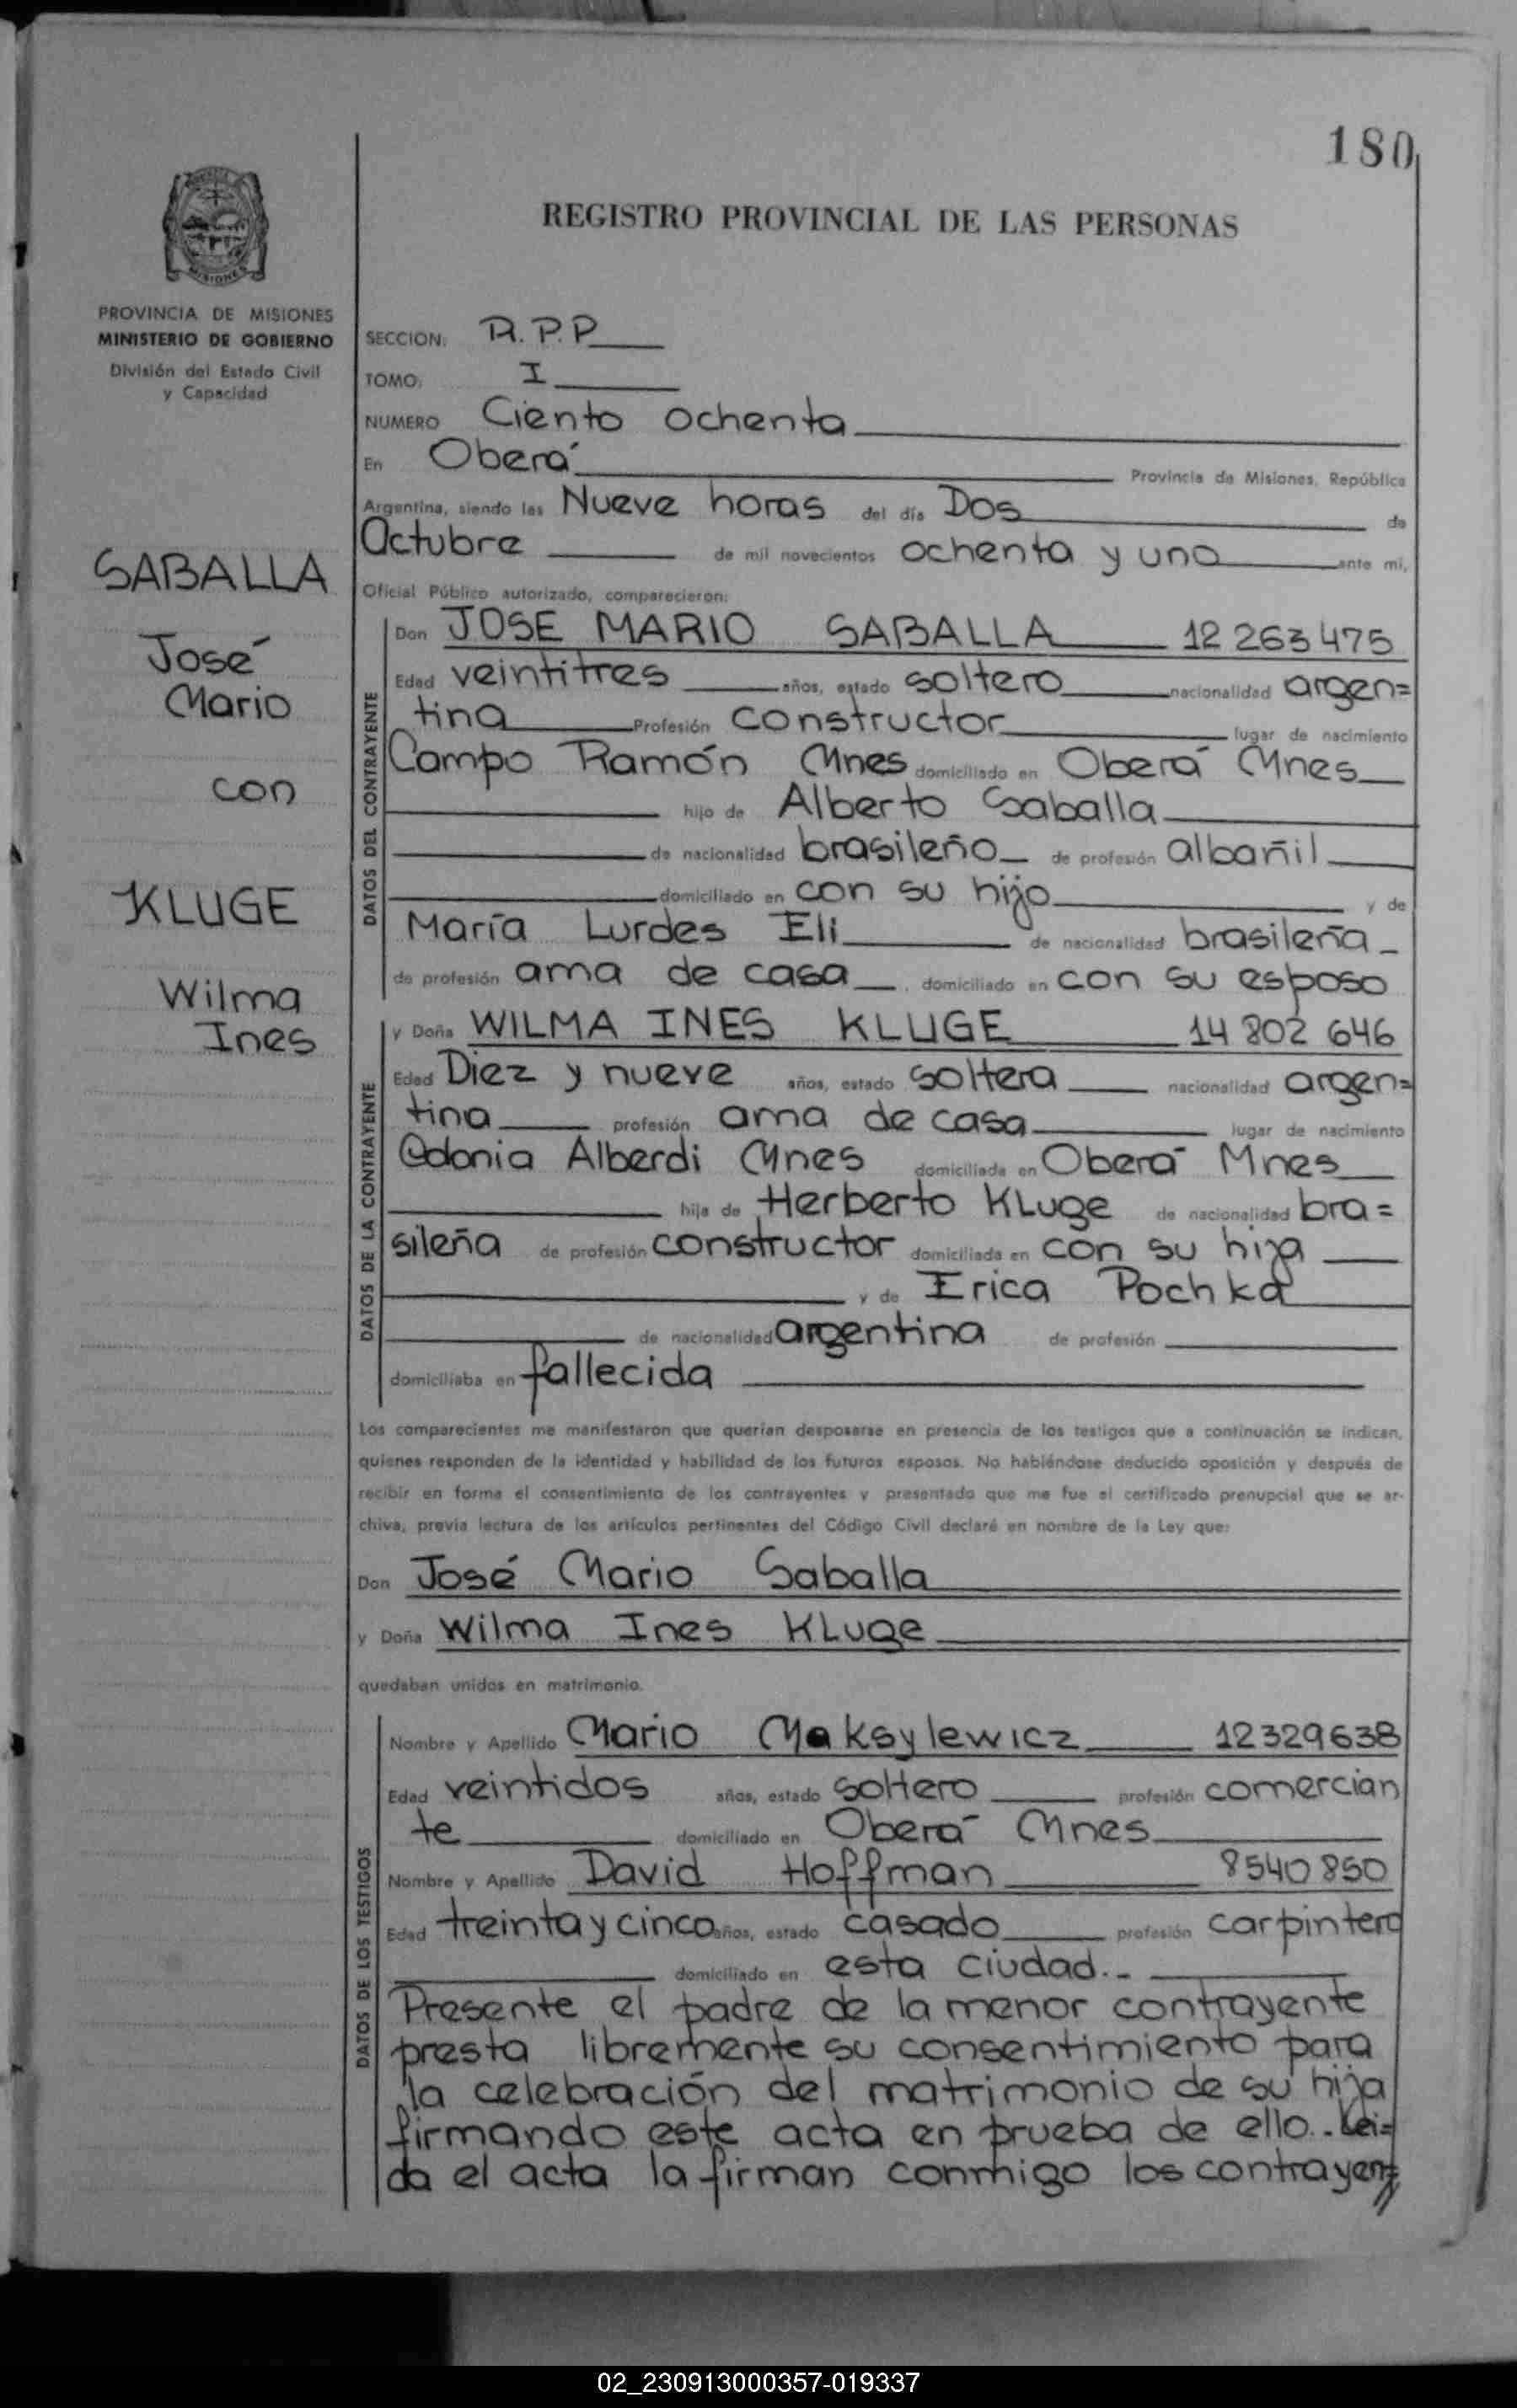 180
REGISTRO PROVINCIAL DE LAS PERSONAS
MISIONES
PROVINCIA DE MISIONES
MINISTERIO DE GOBIERNO
División del Estado Civil
y Capacidad
SABALLA
José
Mario
con
KLUGE
Wilma
Ines
SECCION: R.P.P
TOMO: I
NUMERO Ciento ochenta
En Oberá Provincia de Misiones, República
Argentina, siendo las Nueve horas del día Dos de
Octubre de mil novecientos ochenta y uno ante mi,
Oficial Público autorizado, comparecieron:
DATOS DEL CONTRAYENTE
Don JOSE MARIO SABALLA 12 263 475
Edad veintitres años, estado soltero nacionalidad argen=
tina Profesión constructor lugar de nacimiento
Campo Ramón Mnes domiciliado en Oberá Mnes
hijo de Alberto Saballa
de nacionalidad brasileño de profesión albañil
domiciliado en con su hijo y de
María Lurdes Eli de nacionalidad brasileña
de profesión ama de casa domiciliado en con su esposo
DATOS DE LA CONTRAYENTE
y Doña WILMA INES KLUGE 14 802 646
Edad Diez y nueve años, estado soltera nacionalidad argen=
tina profesión ama de casa lugar de nacimiento
Colonia Alberdi Mnes domiciliada en Oberá Mnes
hija de Herberto Kluge de nacionalidad bra=
sileña de profesión constructor domiciliada en con su hija
y de Erica Pochka
de nacionalidad argentina de profesión
domiciliaba en fallecida
Los comparecientes me manifestaron que querían desposarse en presencia de los testigos que a continuación se indican,
quienes responden de la identidad y habilidad de los futuros esposos. No habiéndose deducido oposición y después de
recibir en forma el consentimiento de los contrayentes y presentado que me fue el certificado prenupcial que se ar-
chiva, previa lectura de los artículos pertinentes del Código Civil declaré en nombre de la Ley que:
Don José Mario Saballa
y Doña Wilma Ines Kluge
quedaban unidos en matrimonio.
DATOS DE LOS TESTIGOS
Nombre y Apellido Mario Maksylewicz 12329638
Edad veintidos años, estado soltero profesión comercian
te domiciliado en Oberá Mnes
Nombre y Apellido David Hoffman 8540850
Edad treinta y cinco años, estado casado profesión carpintero
domiciliado en esta ciudad.-
Presente el padre de la menor contrayente
presta libremente su consentimiento para
la celebración del matrimonio de su hija
firmando este acta en prueba de ello.- Lei=
da el acta la firman conmigo los contrayen=
02_230913000357-019337